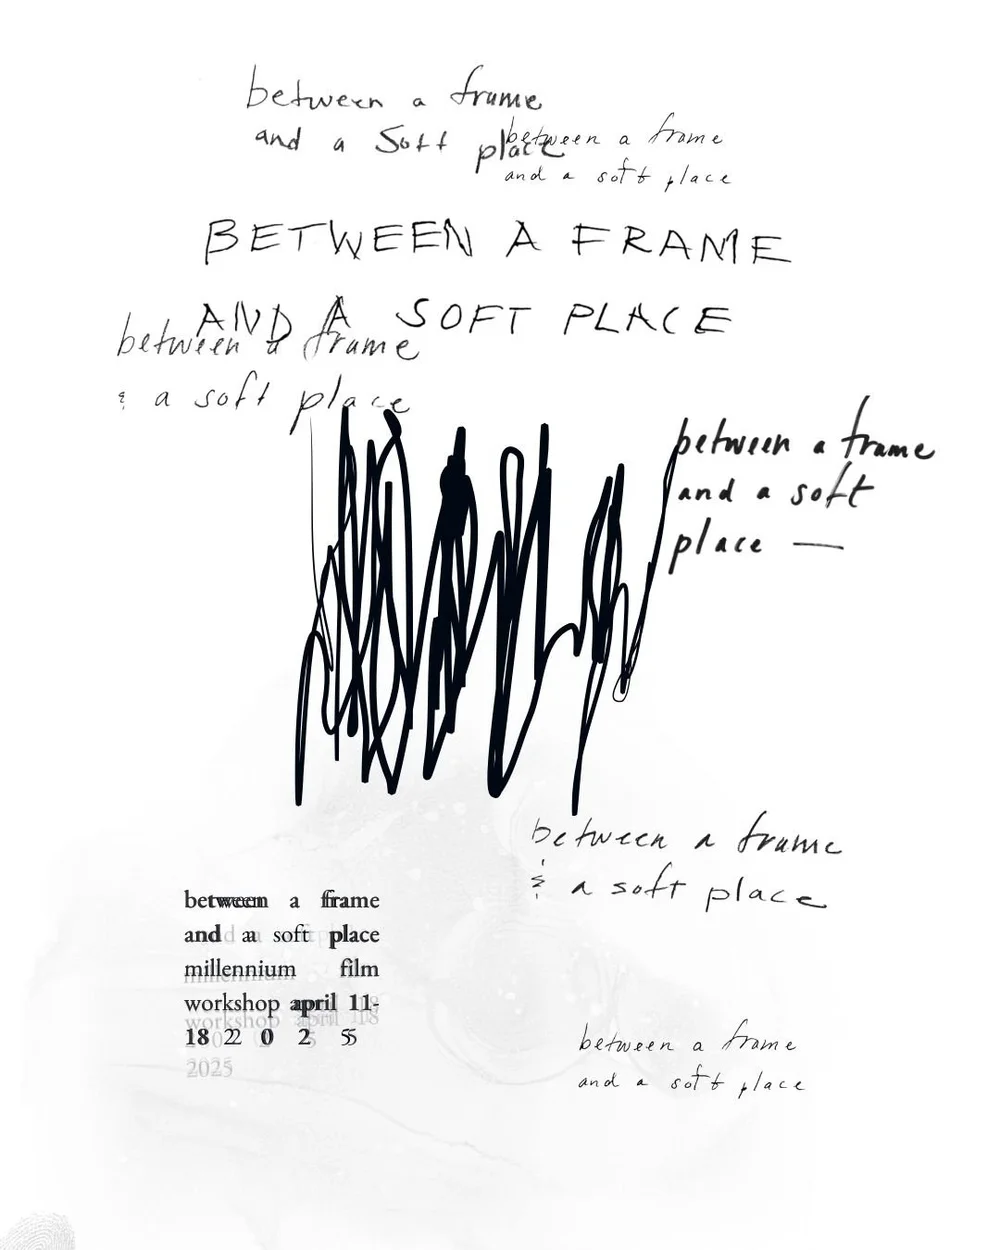 between a frame
and a soft place
between a frame
and a soft place
BETWEEN A FRAME
AND A SOFT PLACE
between a frame
& a soft place
between a frame
and a soft
place —
between a frame
& a soft place
between a frame
and a soft place
millennium film
workshop april 11-
18 2025
workshop april 18
2025
between a frame
and a soft place